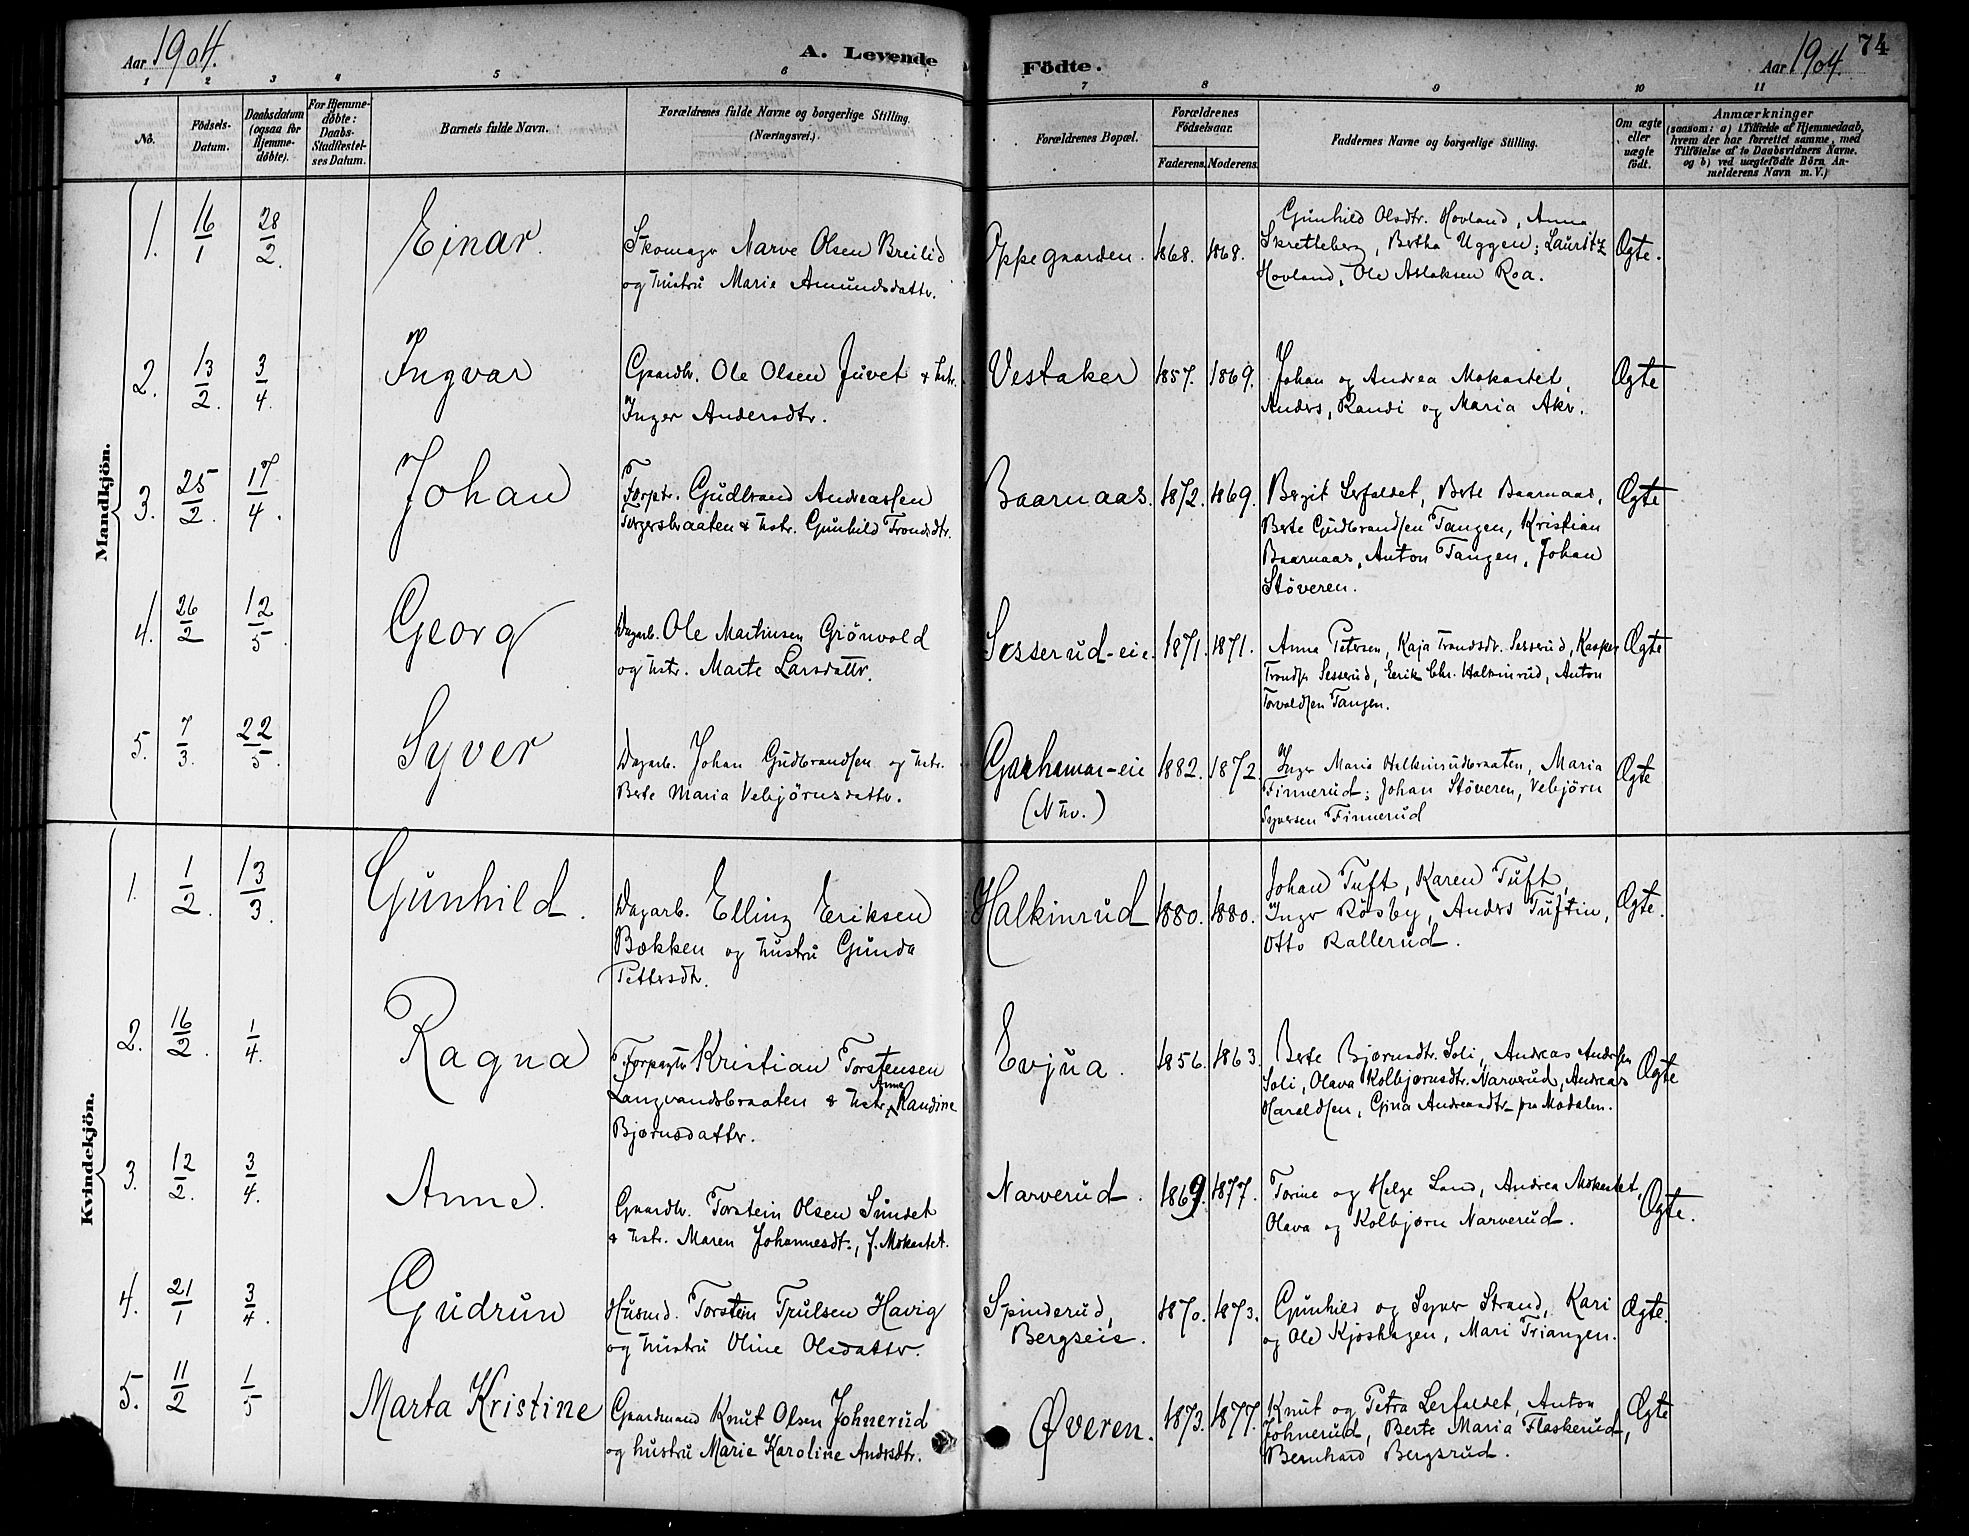 Aar 1904. A. Levende Födte. Aar 1904. 74
1 2 3 4 5 6 7 8 9 10 11
No.
Födsels-Datum.
Daabsdatum (ogsaa for Hjemme-döbte).
For Hjemme-döbte: Daabs-Stadfæstel-ses Datum.
Barnets fulde Navn.
Forældrenes fulde Navne og borgerlige Stilling. (Næringsvei.)
Forældrenes Bopæl.
Forældrenes Födselsaar.
Faderens. Moderens.
Faddernes Navne og borgerlige Stilling.
Om ægte eller uægte födt.
Anmærkninger
(saasom: a) i Tilfælde af Hjemmedaab,
hvem der har forrettet samme, med
Tilföielse af to Daabsvidners Navne.
og b) ved uægtefödte Börn An-
melderens Navn m. V.)
Mandkjön.
1. 16/1 28/2. Einar.
Skomagr Narve Olsen Breilid
og hustru Marie Amundsdattr.
Oppegaarden. 1868. 1868.
Gunhild Olsdtr. Hovland, Anna
Skretteberg, Bertha Uggen; Lauritz
Hovland, Ole Aslaksen Roa.
Ægte.
2. 13/2. 3/4. Ingvar
Gaardbr. Ole Olsen Juvet & hstr.
Inger Andersdtr.
Vestaker 1857. 1869.
Johan og Andrea Mokastet,
Anders, Randi og Maria Akr.
Ægte
3. 25/2. 17/4. Johan
Forptr. Gudbrand Andreassen
Torgersbraaten & hstr. Gunhild Trondsdtr.
Baarnaas. 1872. 1869.
Bergit Lerfaldet, Berte Baarnaas,
Berte Gudbrandsen Tangen, Kristian
Baarnaas, Anton Tangen, Johan
Stöveren.
Ægte
4. 26/2 12/5. Georg
Dagarb. Ole Martinsen Grönvold
og hstr. Marte Larsdattr.
Sesserud-eie. 1871. 1871.
Anna Petersen, Kaja Trondsdr. Sesserud, Kasper
Trondsn Sesserud, Eerik Chr. Halkinrud, Anton
Torvaldsen Tangen.
Ægte
5. 7/3. 22/5. Syver
Dagarb. Johan Gudbrandsen og hstr.
Berte Maria Vebjörnsdattr.
Garhamar-eie 1882. 1872
(N hv.)
Inger Maria Halkinrudbraaten, Maria
Finnerud; Johan Stöveren, Vebjörn
Syversen Finnerud
Ægte
Kvindekjön.
1. 1/2. 13/3. Gunhild.
Dagarb. Elling Eriksen
Bækken og hustru Gunda
Pettersdtr.
Halkinrud 1880. 1880.
Johan Tuft, Karen Tuft,
Ingr Rösby, Anders Tuftin,
Otto Rallerud.
Ægte.
2. 16/2. 1/4. Ragna
Forpagtr Kristian Torstensen
Langvandsbraaten & hstr. Anne Randine
Bjørnsdattr.
Evjua. 1856. 1863.
Berte Bjørnsdtr. Soli, Andreas Andersen
Soli, Olava Kolbjørnsdtr. Narverud, Andreas
Haraldsen, Gina Andreasdtr. fra Modalen.
Ægte
3. 12/2. 3/4. Anne.
Gaardbr. Torstein Olsen Sundet
& hstr. Maren Johannesdt., f. Mokastet.
Narverud. 1869. 1877.
Torine og Helge Sand, Andrea Mokastet,
Olava og Kolbjørn Narverud.
Ægte.
4. 21/1 3/4. Gudrun
Husmd. Torstein Trulsen Havig
og hustru Oline Olsdattr.
Spinderud, 1870. 1873.
Bergseie.
Gunhild og Syver Strand, Kari
og Ole Kjøshagen, Mari Triangen.
Ægte.
5. 11/2 1/5 Marta Kristine
Gaardmand Knut Olsen Johnerud
og hustru Marie Karoline Andrsdtr.
Øveren. 1873. 1877.
Knut og Petra Lerfaldet, Anton
Johnerud, Berte Maria Flaskerud,
Bernhard Bergsrud.
Ægte